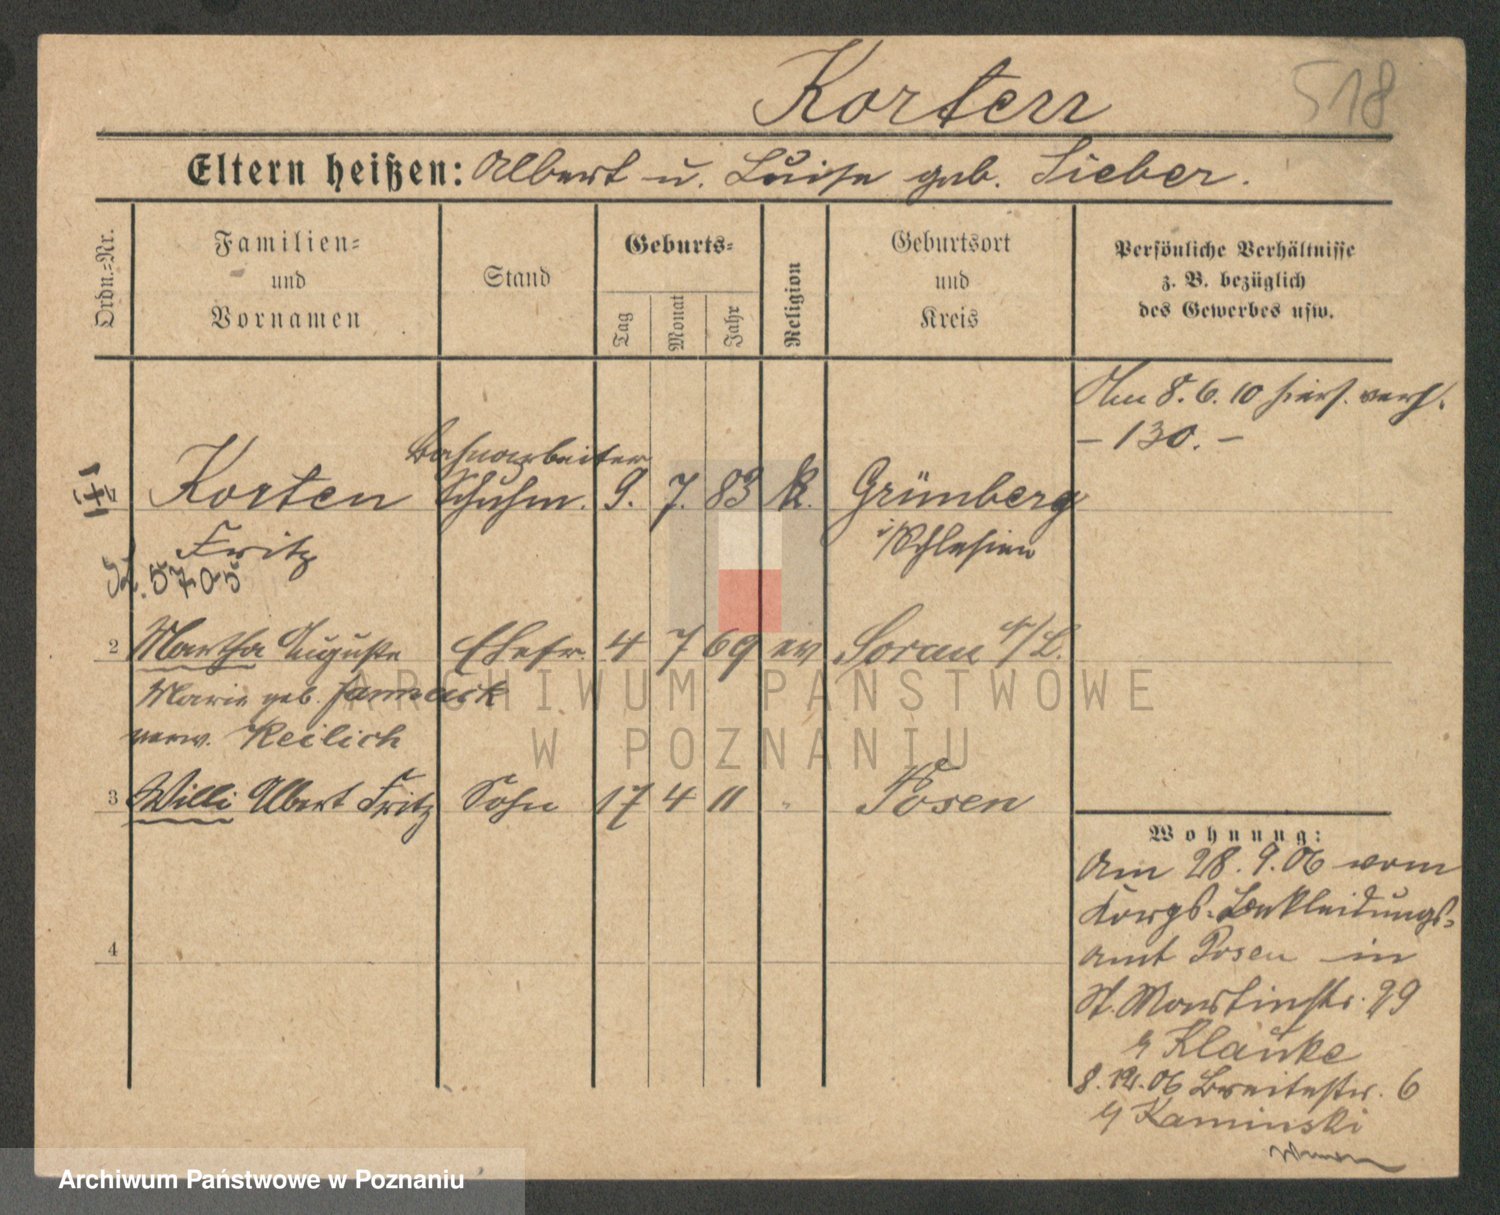 Korten
518
Eltern heißen: Albert u. Luise geb. Sieber.
Ordn.-Nr.
Familien-
und
Vornamen
Stand
Geburts-
Tag
Monat
Jahr
Religion
Geburtsort
und
Kreis
Persönliche Verhältnisse
z. B. bezüglich
des Gewerbes usw.
Am 8.6.10 hier verh.
- 130. -
Bahnarbeiter
Korten Schuhm. 9. 7. 83 k. Grünberg
Fritz i/Schlesien
5705
2 Martha Auguste Ehefr. 4 7 69 ev Sorau N/L.
Marie geb.
verw. Reilich
3 Willi Albert Fritz Sohn 17 4 11 " Posen
4
Wohnung:
Am 28.9.06 vom
Korps-Bekleidungs-
amt Posen in
St. Martinstr. 29
b/ Klauke
8.12.06 Breitestr. 6
b/ Kaminski
ARCHIWUM PAŃSTWOWE
W POZNANIU
Archiwum Państwowe w Poznaniu